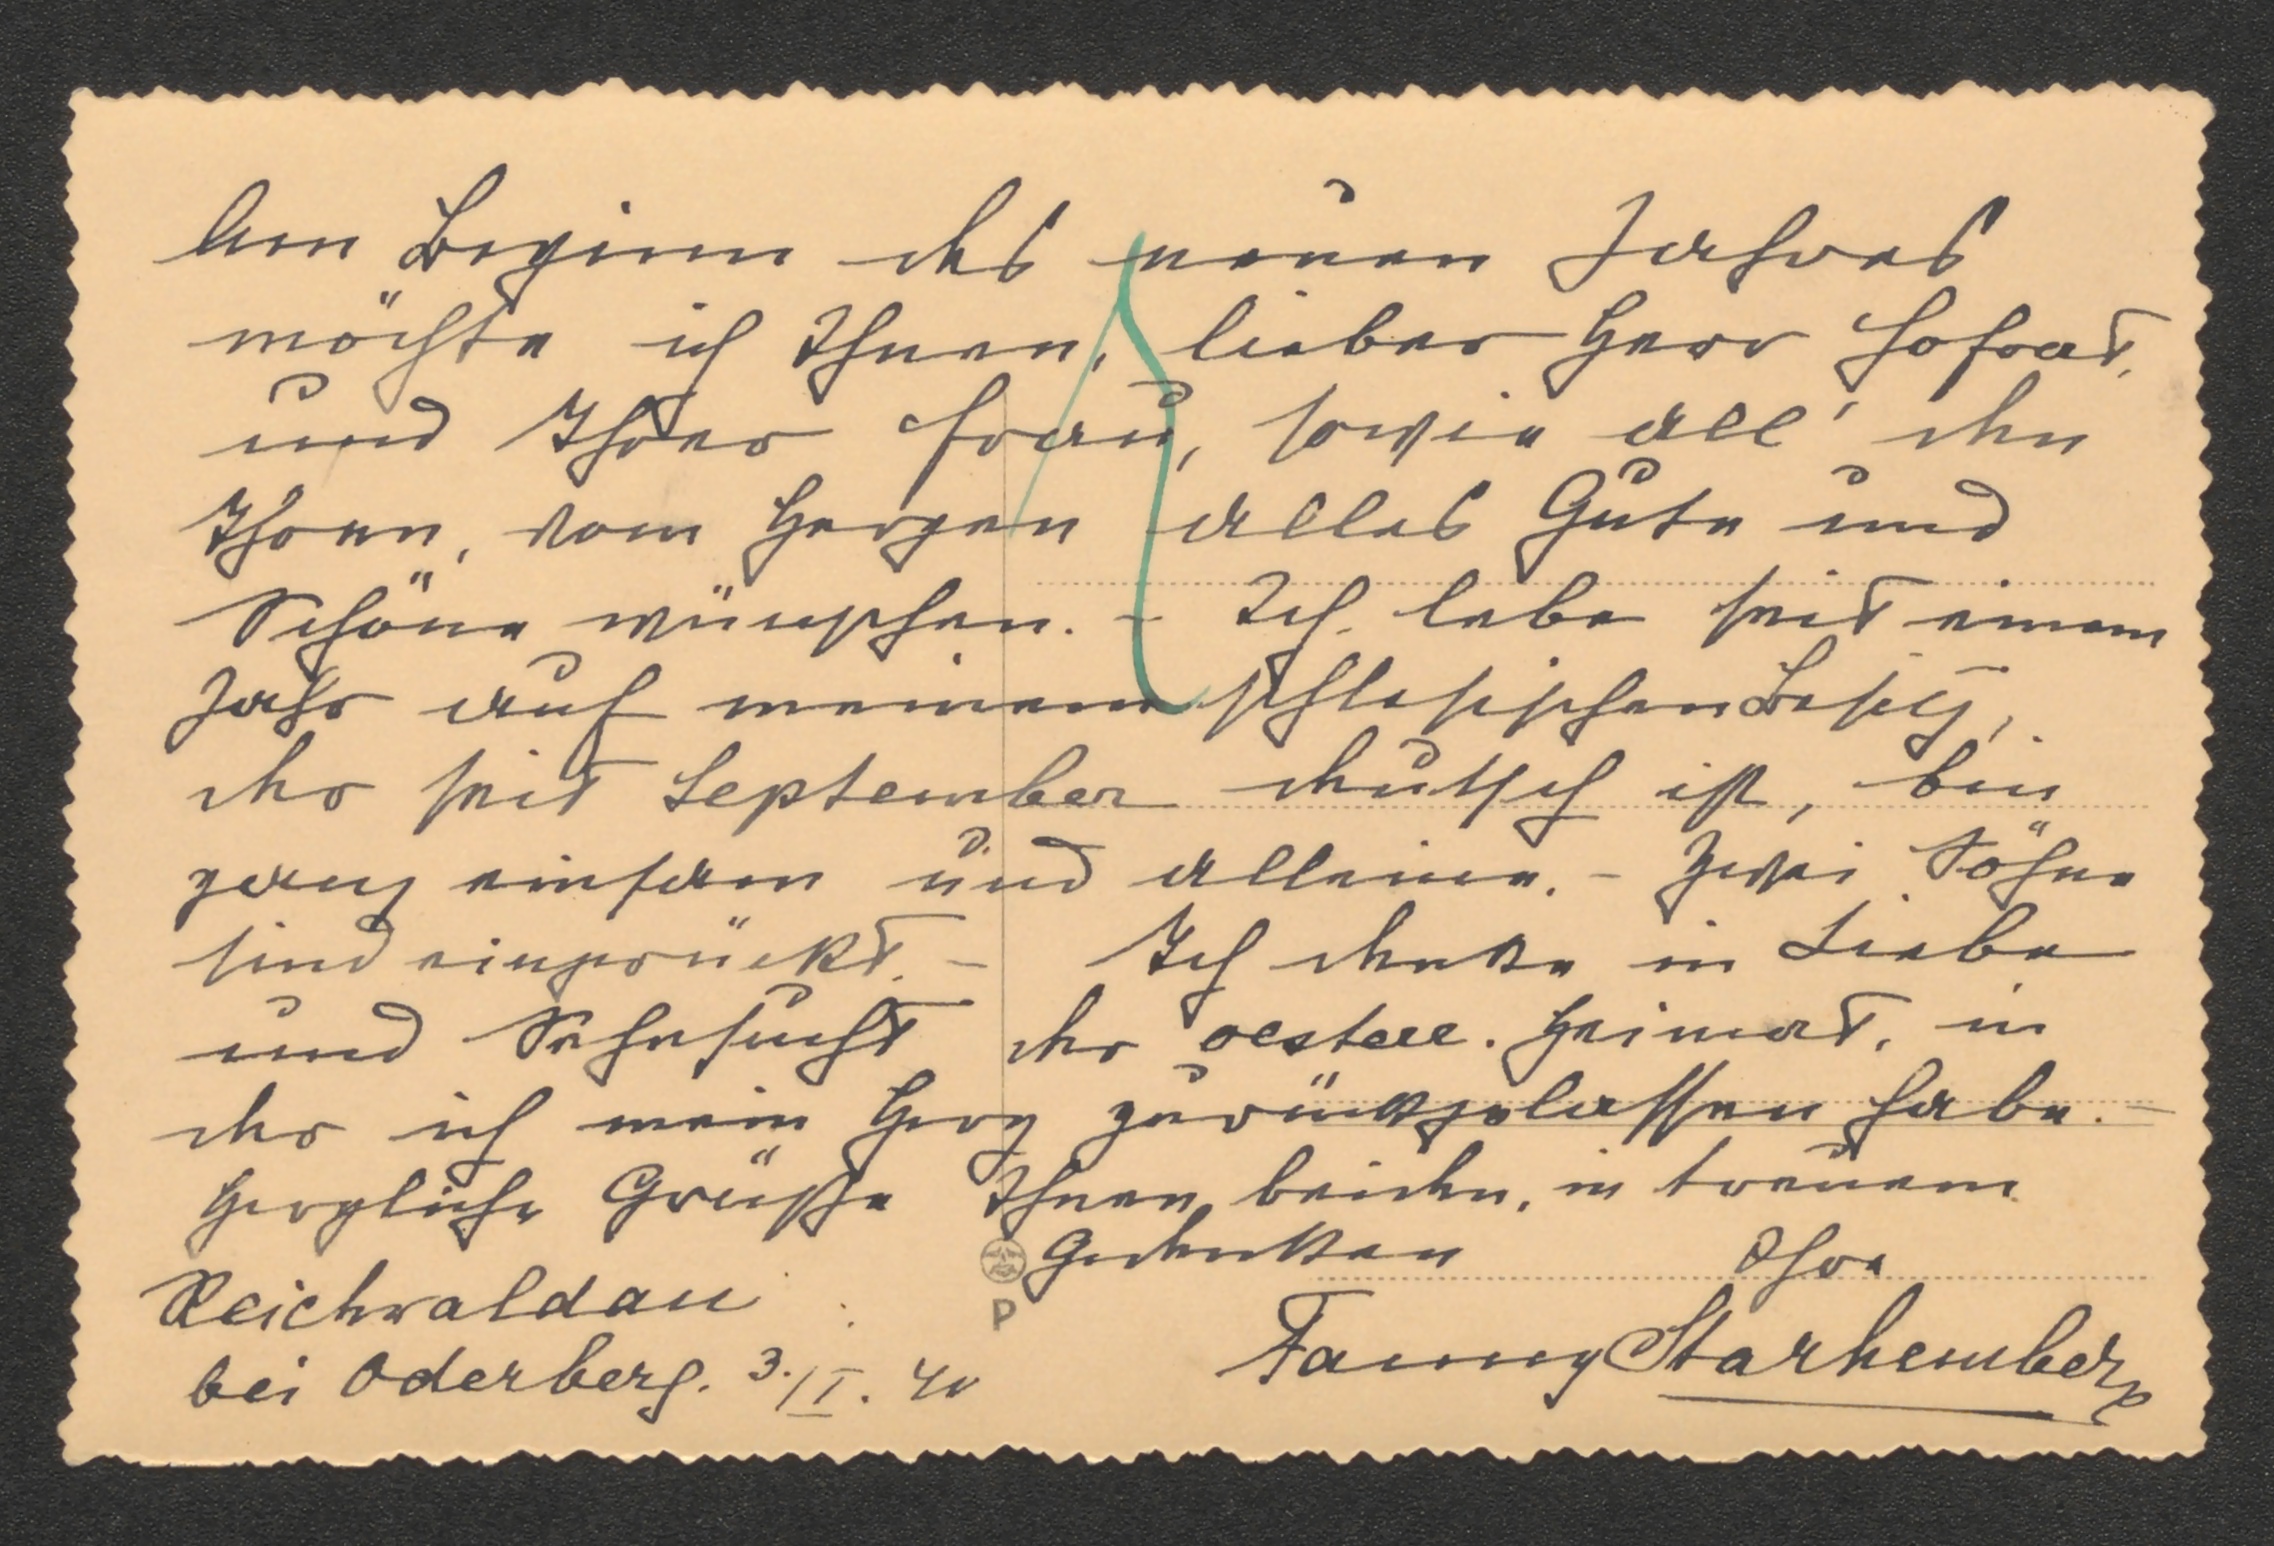 Am Beginn des neuen Jahres
möchte ich Ihnen, lieber Herr Hofrat,
und Ihrer Frau, sowie all' den
Ihren, vom Herzen alles Gute und
Schöne wünschen. - Ich lebe seit einem
Jahr auf meinem schlesischen Besitz,
der seit September deutsch ist, bin
ganz einsam und alleine. - Zwei Söhne
sind eingerückt. - Ich denke in Liebe
und Sehnsucht der oesterr. Heimat, in
der ich mein Herz zurückgelassen habe. -
Herzliche Grüße Ihnen beiden, in treuem
Gedenken Ihre
Reichwaldau
P
Fanny Starhemberg
bei Oderberg. 3./I. 40